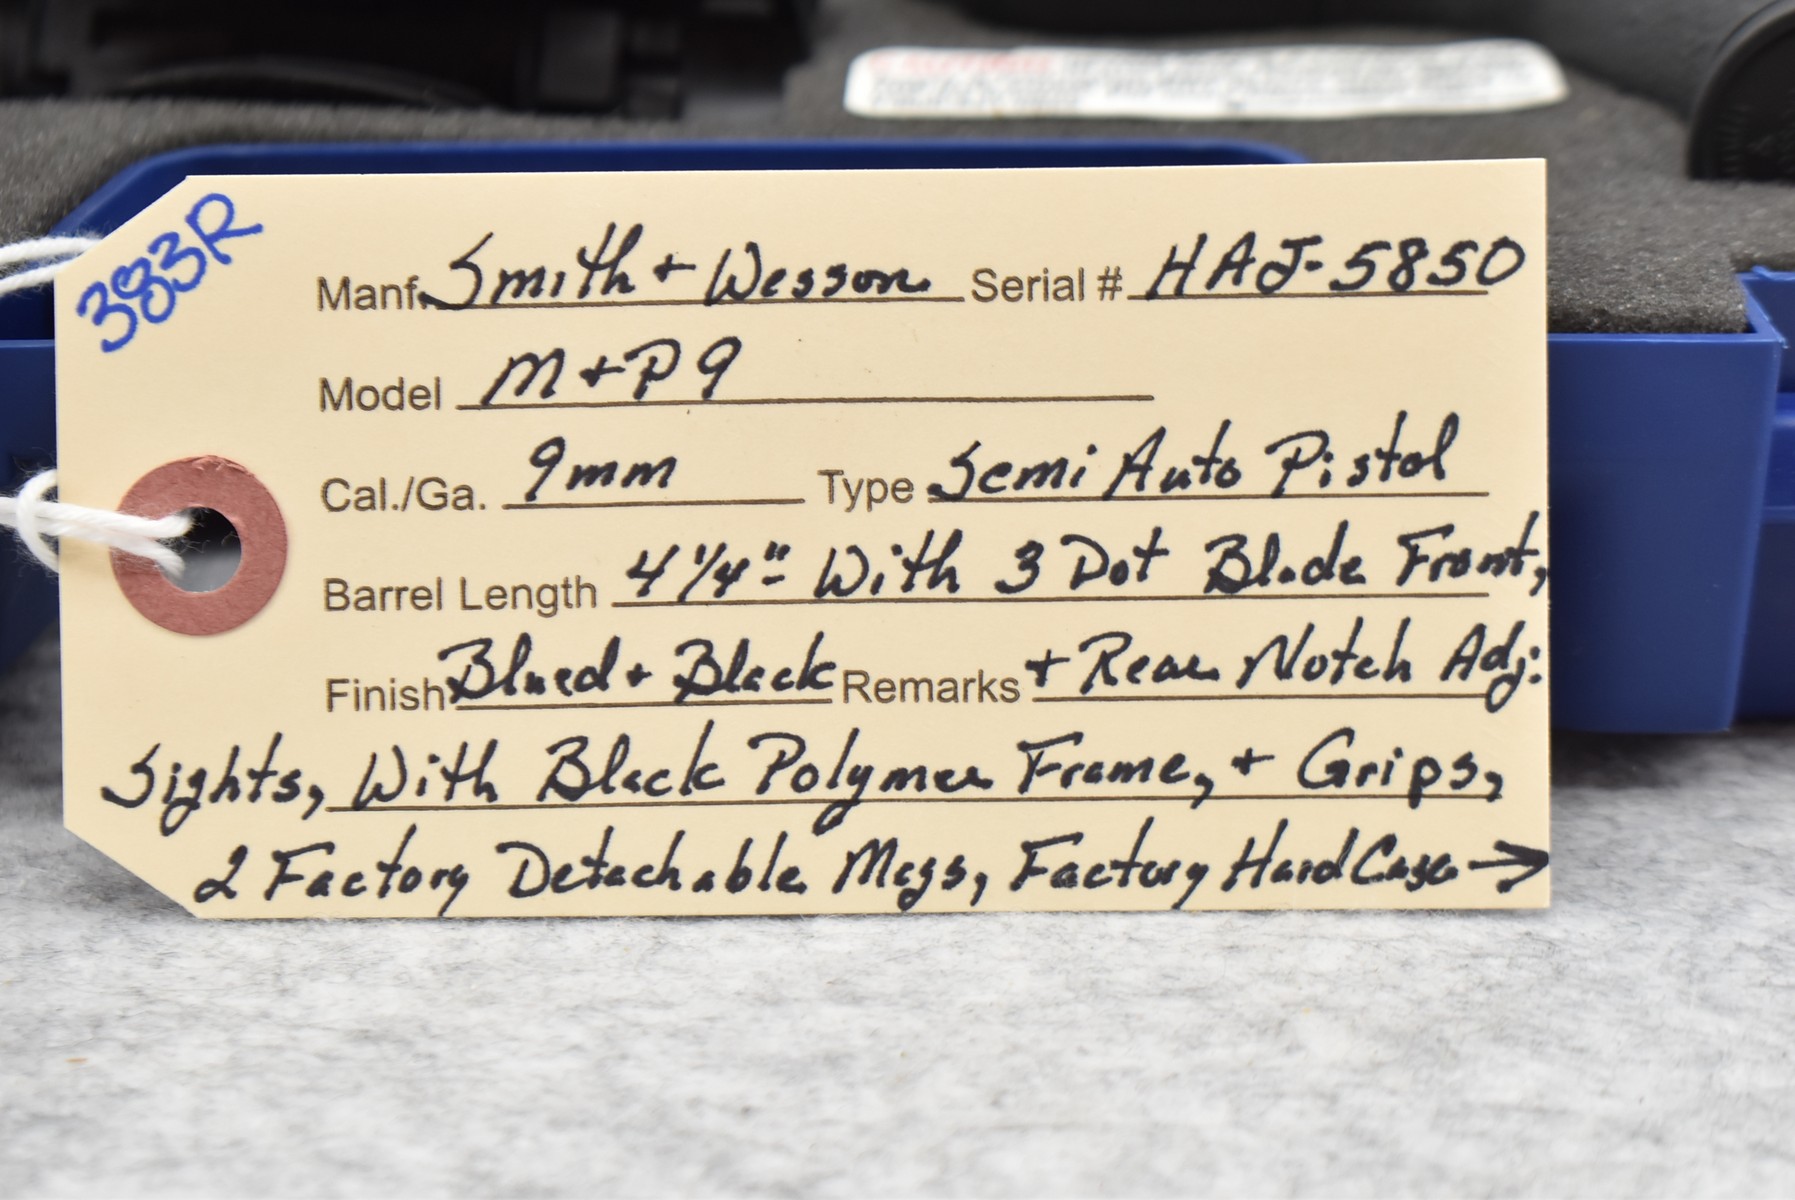 383R
Manf. Smith + Wesson Serial # HAJ-5850
Model M+P 9
Cal./Ga. 9mm Type Semi Auto Pistol
Barrel Length 4 1/4" With 3 Dot Blade Front,
Finish Blued + Black Remarks + Rear Notch Adj:
Sights, With Black Polymer Frame, + Grips,
2 Factory Detachable Mags, Factory Hard Case →